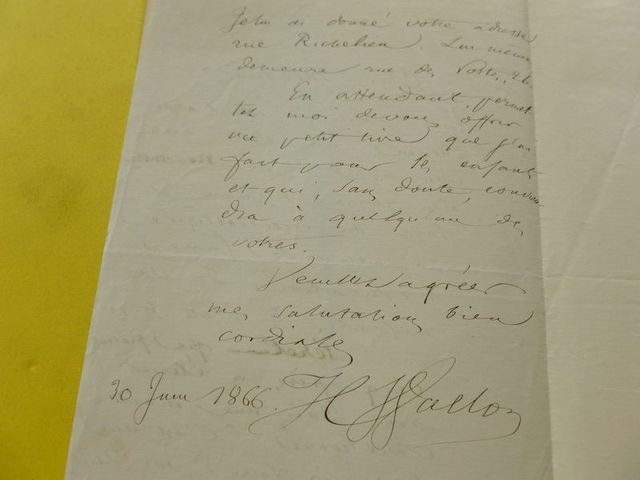 Je lui ai donné votre adresse
rue Richelieu. Lui même
demeure rue des Postes, 26.
En attendant, permet
tez moi de vous offrir
un petit livre que j'ai
fait pour les enfants
et qui, sans doute, convien
dra à quelqu'un des
votres.
Veuillez agréer
mes salutations bien
cordiales
30 Juin 1866. H Wallon